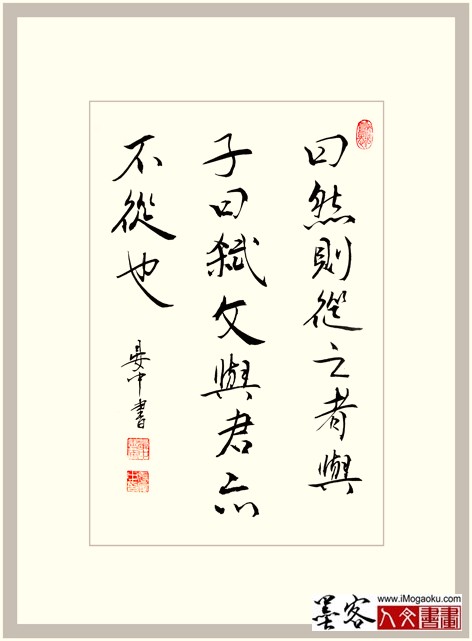 曰然則從之者與
子曰弒父與君亦
不從也
晏中書
墨客
www.iMogaoku.com
人文書畫